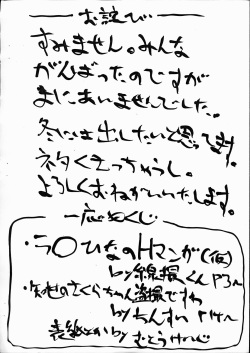 お詫び
すみません。みんな
がんばったのですが
まにあいませんでした。
冬には出したいと思ってます。
ネタくさっちゃうし。
よろしくおねがいします。
一応もくじ
・ラ○ひなのHマンガ(仮)
by 線撮くん P3〜
・知世のさくらちゃん盗撮ですわ
by ちんすい P14〜
表紙とか by むとうけーじ